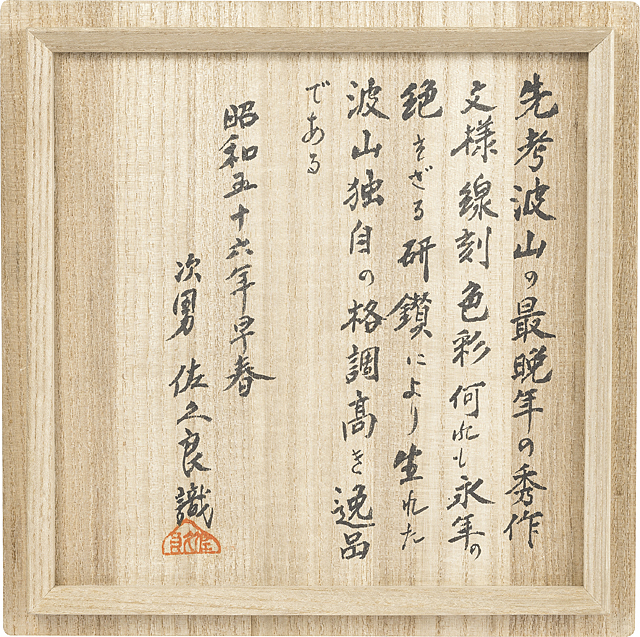 先考波山の最晩年の秀作
文様線刻色彩何れも永年の
絶えざる研鑚により生れた
波山独自の格調高き逸品
である
昭和五十六年早春
次男 佐久良識